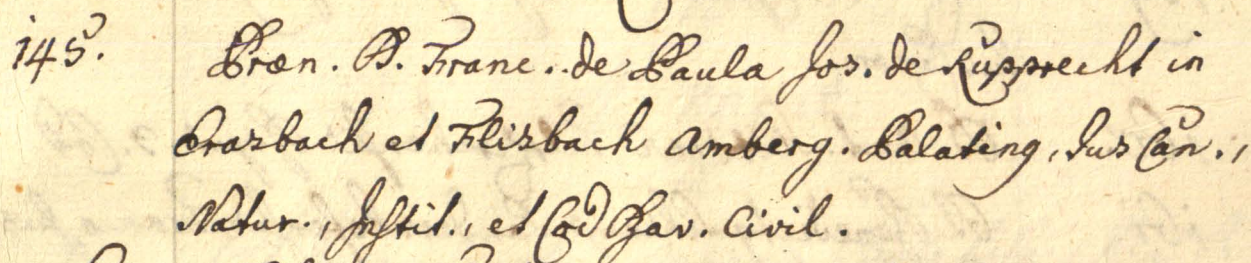 145. Præn. D. Franc. de Paula Jos. de Rupprecht in
Prasbach et Flisbach Amberg. Palating, Jus Can.,
Natur., Instit., et Cod Bav. Civil.